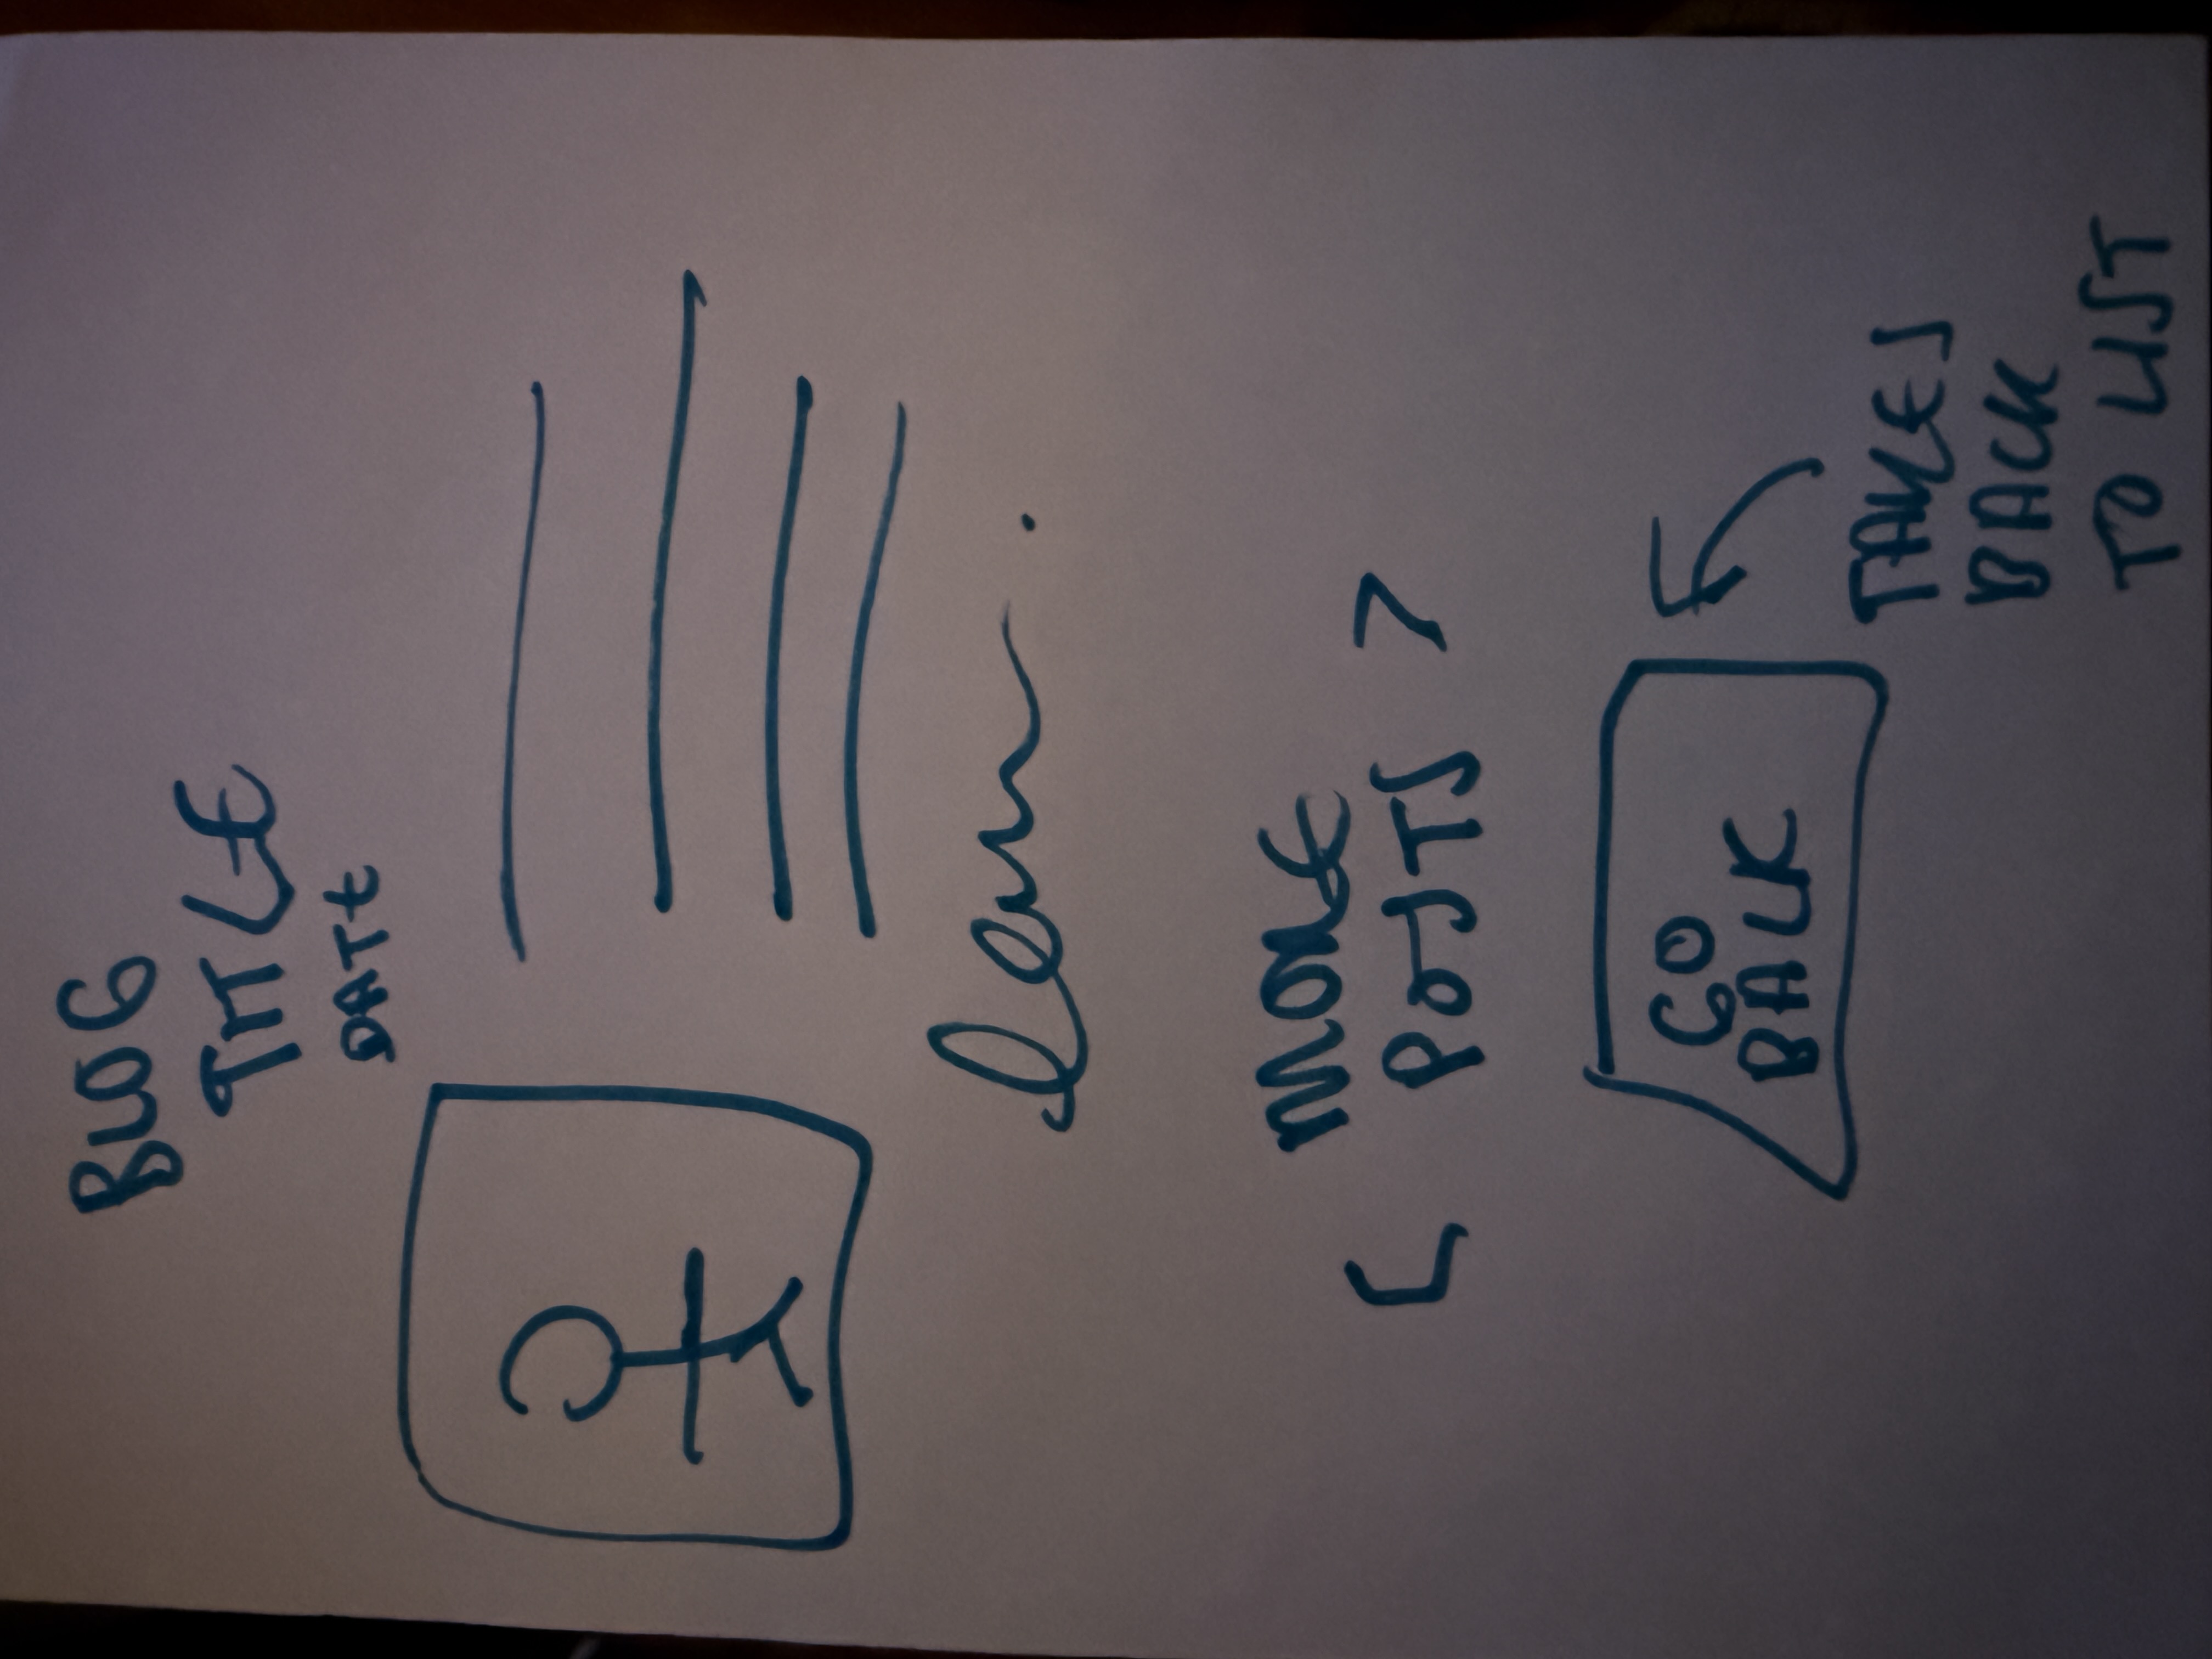 BLOG
TITLE
DATE
MORE
< POSTS >
GO
BACK
TAKES
BACK
TO LIST